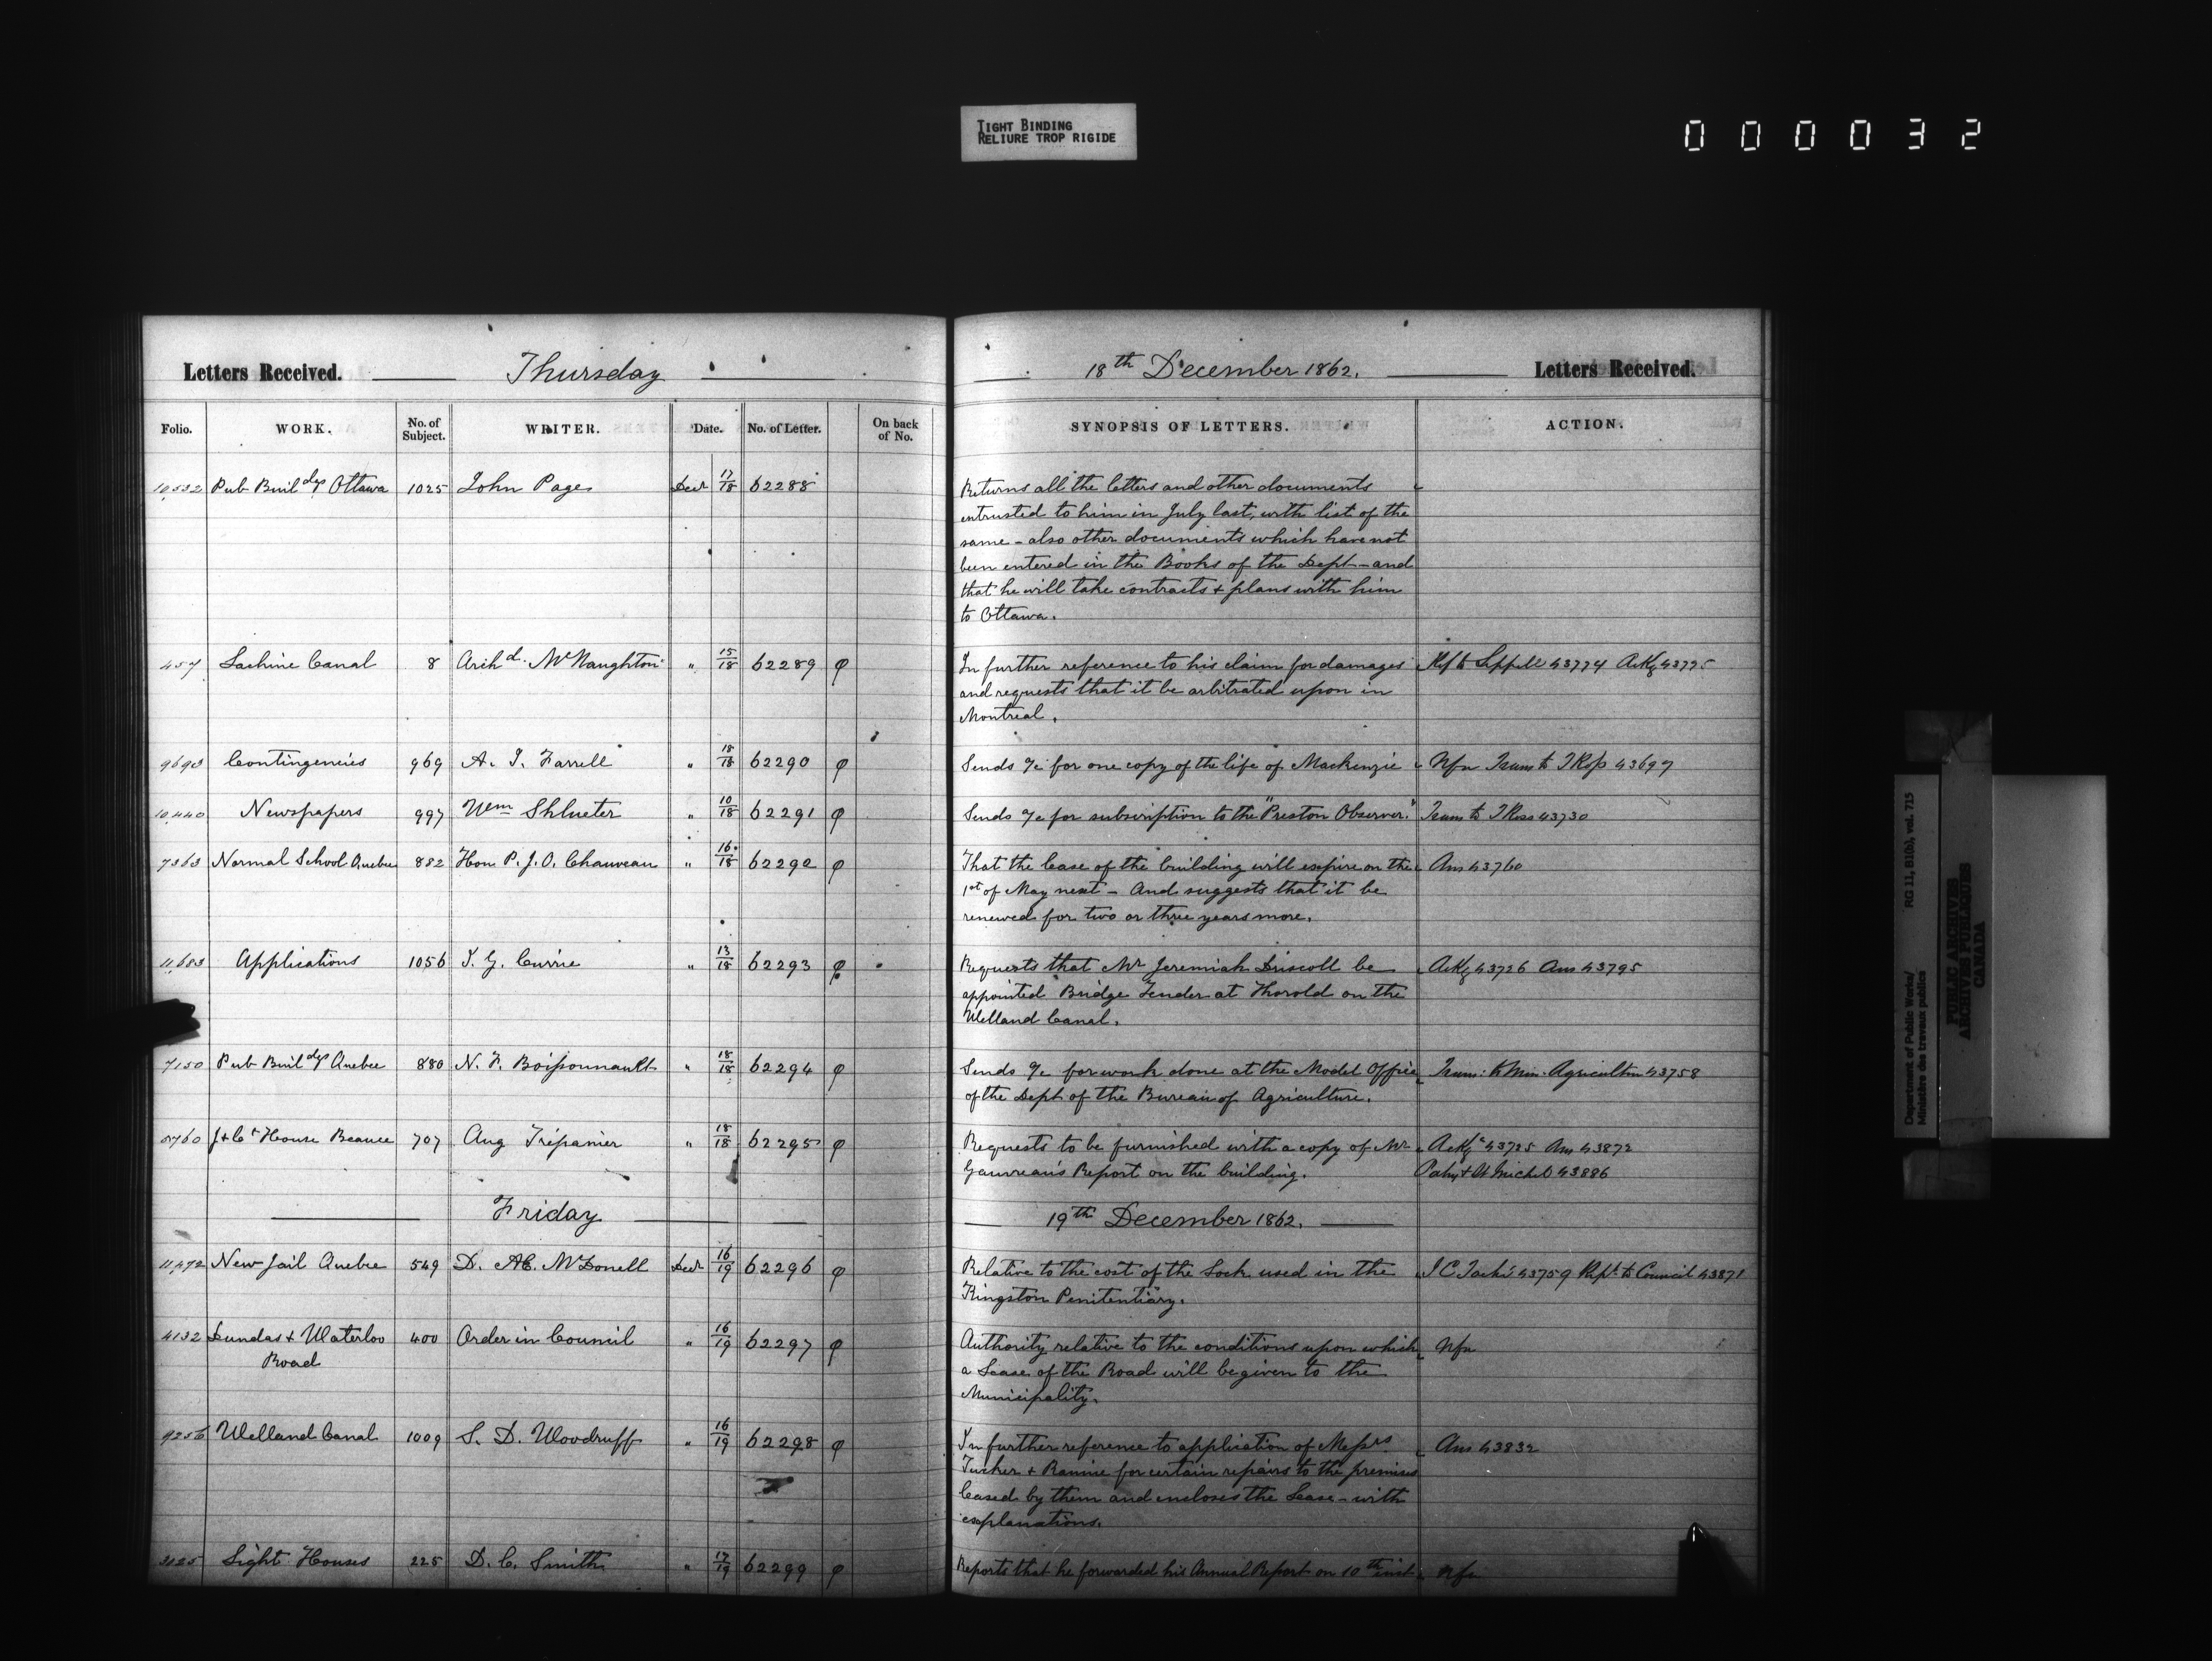 TIGHT BINDING
RELIURE TROP RIGIDE
000032
Letters Received. Thursday 18th December 1862. Letters Received.
Folio. WORK. No. of Subject. WRITER. Date. No. of Letter. On back of No. SYNOPSIS OF LETTERS. ACTION.
10,532 Pub Buildgs Ottawa 1025 John Page Decr 17/18 62288 Returns all the letters and other documents
entrusted to him in July last, with list of the
same - also other documents which have not
been entered in the Books of the Dept - and
that he will take contracts & plans with him
to Ottawa.
457 Lachine Canal 8 Archd. McNaughton " 15/18 62289 φ In further reference to his claim for damages Ref to Sippell 43774 Ackg 43775
and requests that it be arbitrated upon in
Montreal.
9693 Contingencies 969 A. J. Farrell " 18/18 62290 φ Sends a/c for one copy of the life of Mackenzie Nfn Trans to J Ross 43697
10,440 Newspapers 997 Wm Shlueter " 10/18 62291 φ Sends a/c for subscription to the "Preston Observer." Trans to J Ross 43730
7363 Normal School Quebec 882 Hon P. J. O. Chauveau " 16/18 62292 φ That the lease of the building will expire on the Ans 43760
1st of May next - And suggests that it be
renewed for two or three years more.
11,683 Applications 1056 J. G. Currie " 13/18 62293 φ Requests that Mr Jeremiah Driscoll be Ackg 43726 Ans 43795
appointed Bridge Tender at Thorold on the
Welland Canal.
7150 Pub Buildgs Quebec 880 N. F. Boissonnault " 18/18 62294 φ Sends a/c for work done at the Model Office Trans. to Min. Agriculture 43758
of the Dept of the Bureau of Agriculture.
5760 J & Ct House Beauce 707 Aug Trépanier " 18/18 62295 φ Requests to be furnished with a copy of Mr Ackg 43725 Ans 43872
Gauvreau's Report on the building. 43886
Friday 19th December 1862.
11,472 New Jail Quebec 549 D. Æ. McDonell Decr 16/19 62296 φ Relative to the cost of the Lock used in the J C Taché 43759 Rept. to Council 43871
Kingston Penitentiary.
4132 Dundas & Waterloo 400 Order in Council " 16/19 62297 φ Authority relative to the conditions upon which Nfn
Road a Lease of the Road will be given to the
Municipality.
9256 Welland Canal 1009 S. D. Woodruff " 16/19 62298 φ In further reference to application of Messrs Ans 43832
Tucker & Rannie for certain repairs to the premises
leased by them and encloses the Lease - with
explanations.
3125 Light Houses 225 D. C. Smith " 17/19 62299 φ Reports that he forwarded his Annual Report on 10th inst. Nfn
Department of Public Works/
Ministère des travaux publics
RG 11, B1(b), vol. 715
PUBLIC ARCHIVES
ARCHIVES PUBLIQUES
CANADA